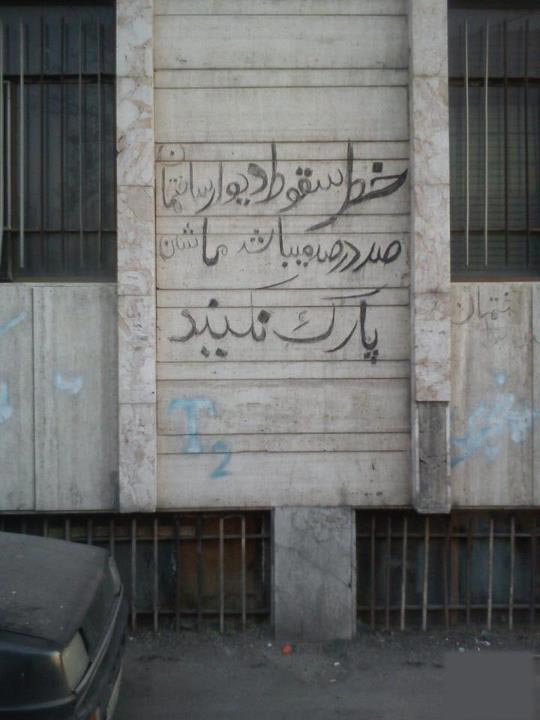 خطر سقوط دیوار ساختمان
صددرصد میباشد ماشین
پارک نکنید
T2